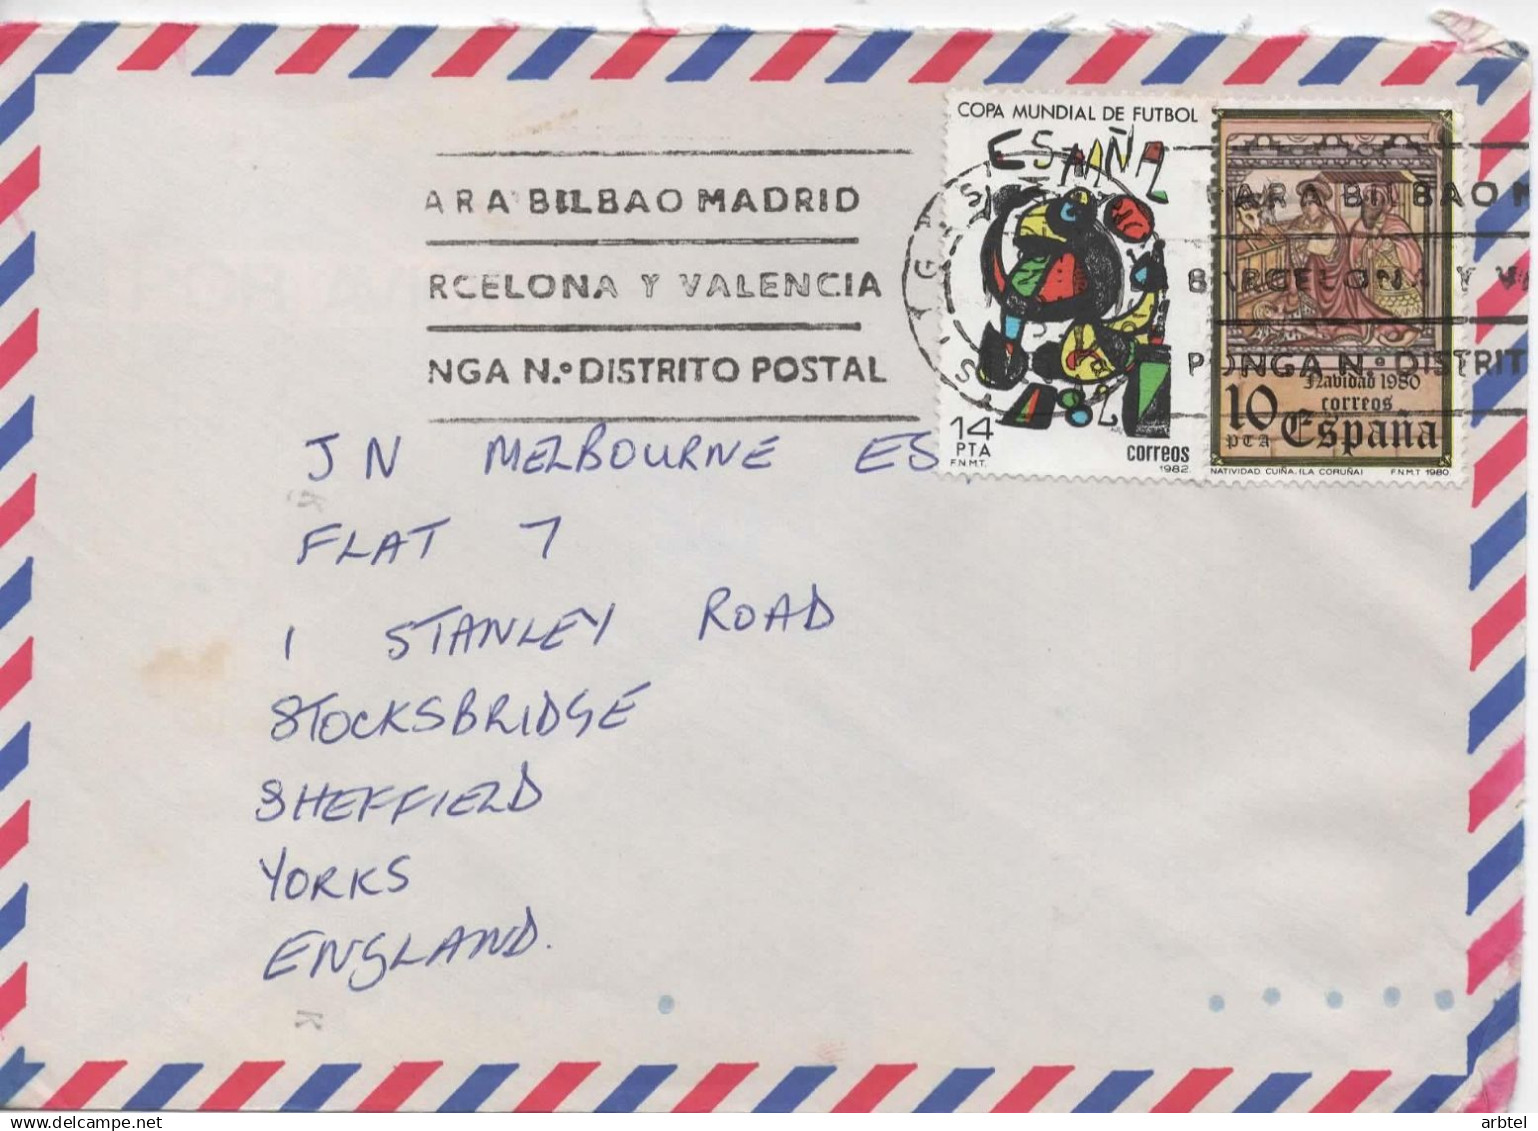 COPA MUNDIAL DE FUTBOL
ESPAÑA
82
14
PTA
F.N.M.T.
correos
1982
Navidad 1980
correos
10
PTA
España
NATIVIDAD CUIÑA. (LA CORUÑA) F.N.M.T 1980
ARA BILBAO MADRID
RCELONA Y VALENCIA
NGA N.º DISTRITO POSTAL
ARA BILBAO M
BARCELONA Y VA
PONGA N.º DISTRIT
JN MELBOURNE ES
FLAT 7
1 STANLEY ROAD
STOCKSBRIDGE
SHEFFIELD
YORKS
ENGLAND.
arbtel
delcampe.net